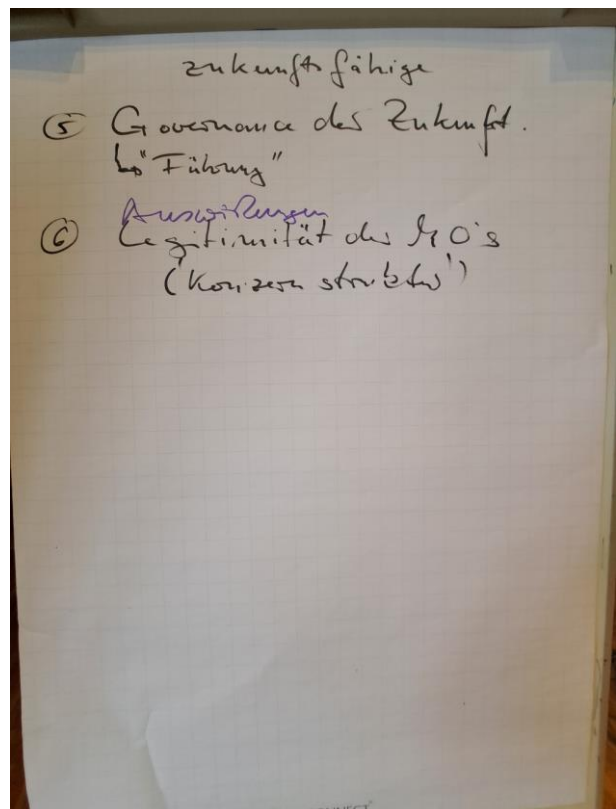 zukunftsfähige
⑤ Governance der Zukunft.
↳ "Führung"
Auswirkungen
⑥ Legitimität der MO's
(Konzernstruktur)